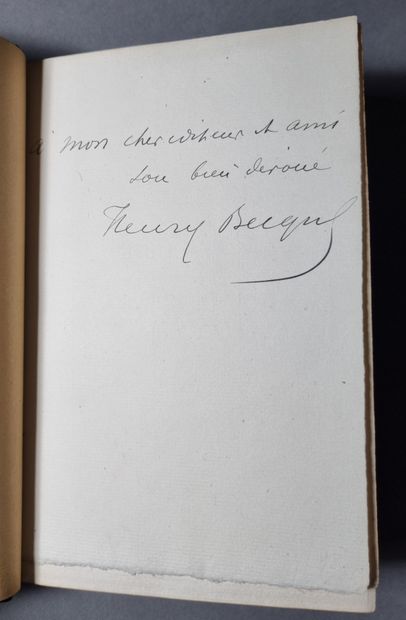 à mon cher editeur et ami
son bien devoué
Henry Becque